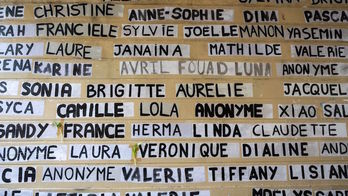 ENE CHRISTINE ANNE-SOPHIE DINA PASCA
RAH FRANCIELE SYLVIE JOELLE MANON YASEMIN
LARY LAURE JANAINA MATHILDE VALERIE
ENA KARINE AVRIL FOUAD LUNA ANONYME
S SONIA BRIGITTE AURELIE JACQUEL
SYCA CAMILLE LOLA ANONYME XIAO SAL
SANDY FRANCE HERMA LINDA CLAUDETTE
NONYME LAURA VERONIQUE DIALINE AND
CIA ANONYME VALERIE TIFFANY LISIAN